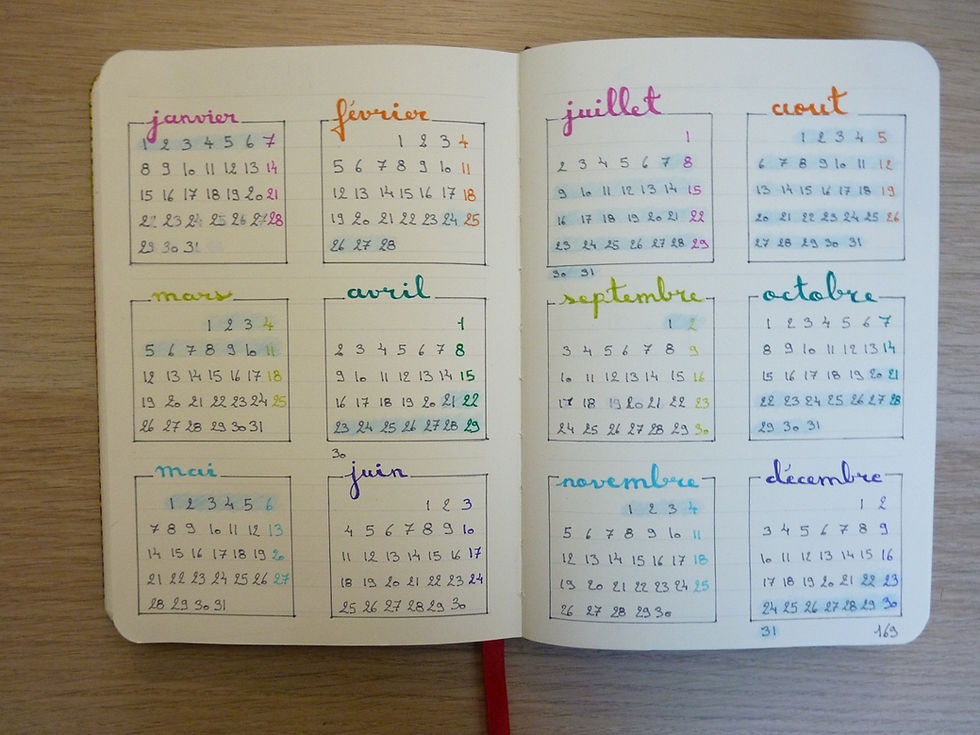 janvier
1 2 3 4 5 6 7
8 9 10 11 12 13 14
15 16 17 18 19 20 21
22 23 24 25 26 27 28
29 30 31
février
1 2 3 4
5 6 7 8 9 10 11
12 13 14 15 16 17 18
19 20 21 22 23 24 25
26 27 28
mars
1 2 3 4
5 6 7 8 9 10 11
12 13 14 15 16 17 18
19 20 21 22 23 24 25
26 27 28 29 30 31
avril
1
2 3 4 5 6 7 8
9 10 11 12 13 14 15
16 17 18 19 20 21 22
23 24 25 26 27 28 29
30
mai
1 2 3 4 5 6
7 8 9 10 11 12 13
14 15 16 17 18 19 20
21 22 23 24 25 26 27
28 29 30 31
juin
1 2 3
4 5 6 7 8 9 10
11 12 13 14 15 16 17
18 19 20 21 22 23 24
25 26 27 28 29 30
juillet
1
2 3 4 5 6 7 8
9 10 11 12 13 14 15
16 17 18 19 20 21 22
23 24 25 26 27 28 29
30 31
aout
1 2 3 4 5
6 7 8 9 10 11 12
13 14 15 16 17 18 19
20 21 22 23 24 25 26
27 28 29 30 31
septembre
1 2
3 4 5 6 7 8 9
10 11 12 13 14 15 16
17 18 19 20 21 22 23
24 25 26 27 28 29 30
octobre
1 2 3 4 5 6 7
8 9 10 11 12 13 14
15 16 17 18 19 20 21
22 23 24 25 26 27 28
29 30 31
novembre
1 2 3 4
5 6 7 8 9 10 11
12 13 14 15 16 17 18
19 20 21 22 23 24 25
26 27 28 29 30
décembre
1 2
3 4 5 6 7 8 9
10 11 12 13 14 15 16
17 18 19 20 21 22 23
24 25 26 27 28 29 30
31
169